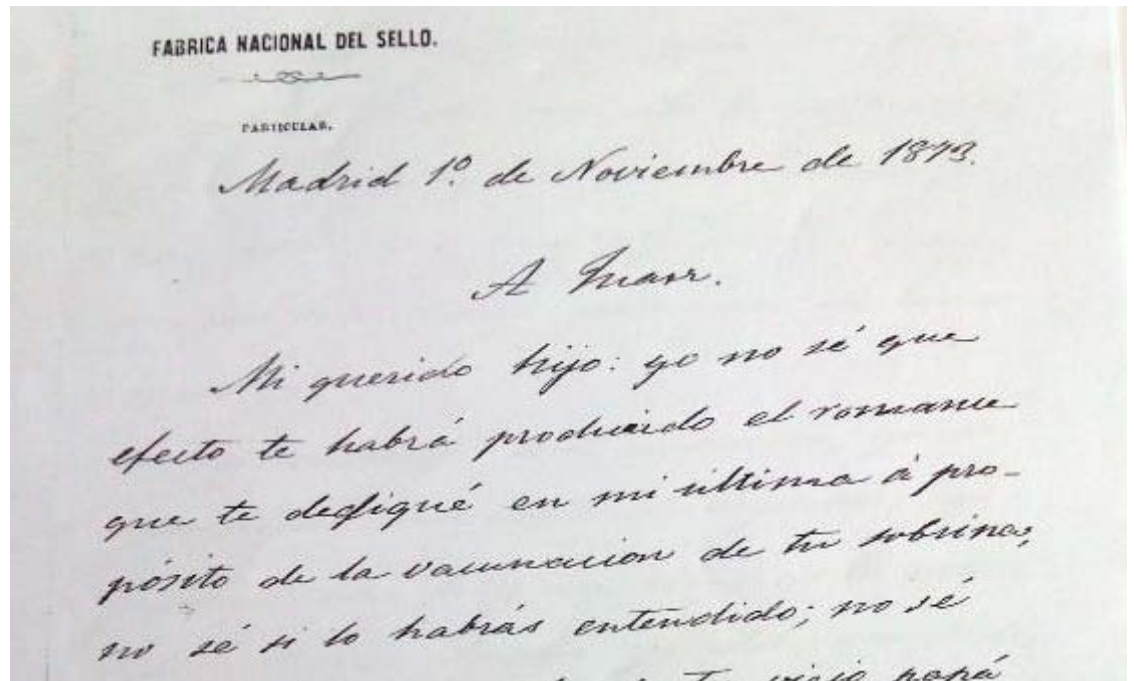 FABRICA NACIONAL DEL SELLO.
PARTICULAR.
Madrid 1º. de Noviembre de 1873.
A Juan.
Mi querido hijo: yo no sé que
efecto te habrá producido el romance
que te dediqué en mi última á pro-
pósito de la vacunacion de tu sobrina;
no sé si lo habrás entendido; no sé
tu viejo papá